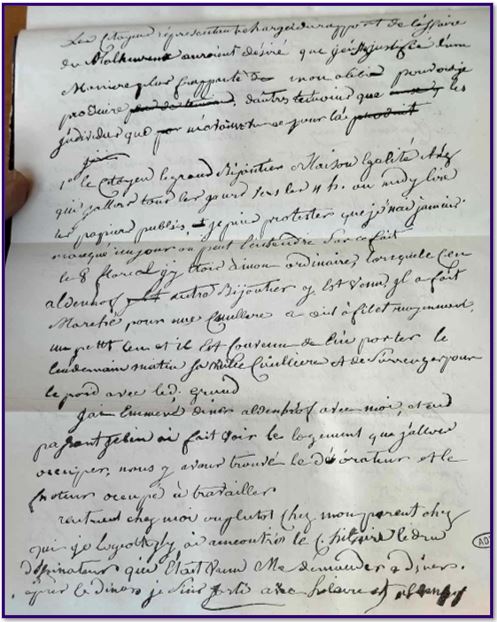 Les citoyens représentans chargés du rapport de l'affaire
du auroient désiré que je justifie d'un
Maniere plus frappante mon alibi pouvois je
produire d'autres temoins que les
individus que
1o le Citoyen legrand Bijoutier Maison Egalité chez
qui j'allois tous les jours vers les 11 h. ou midy lire
les papiers publics je puis protester que je n'ai jamais
manqué un jour on peut l'entendre sur ce fait
le 8 floreal j'y étois à mon ordinaire, lorsque le Cen
aldenhof autre Bijoutier y est venu, il a fait
Marché pour une Cuillere a à filet moyennant
un petit et il est convenu de lui porter le
lendemain matin la Cuilliere et de s'arranger pour
le poid avec led. Grand
J'ai emmené diner aldenhof avec moi, et en
passant je lui ai fait voir le logement que j'allois
occuper, nous y avons trouvé le décorateur et le
frotteur occupé à travailler
rentrant chez moi ou plutot chez mon parent chez
qui je logeois j'y ai rencontré le C. hilaire ledru
dessinateur qui étoit venu Me demander a diner.
après le diner je suis sorti avec hilaire et